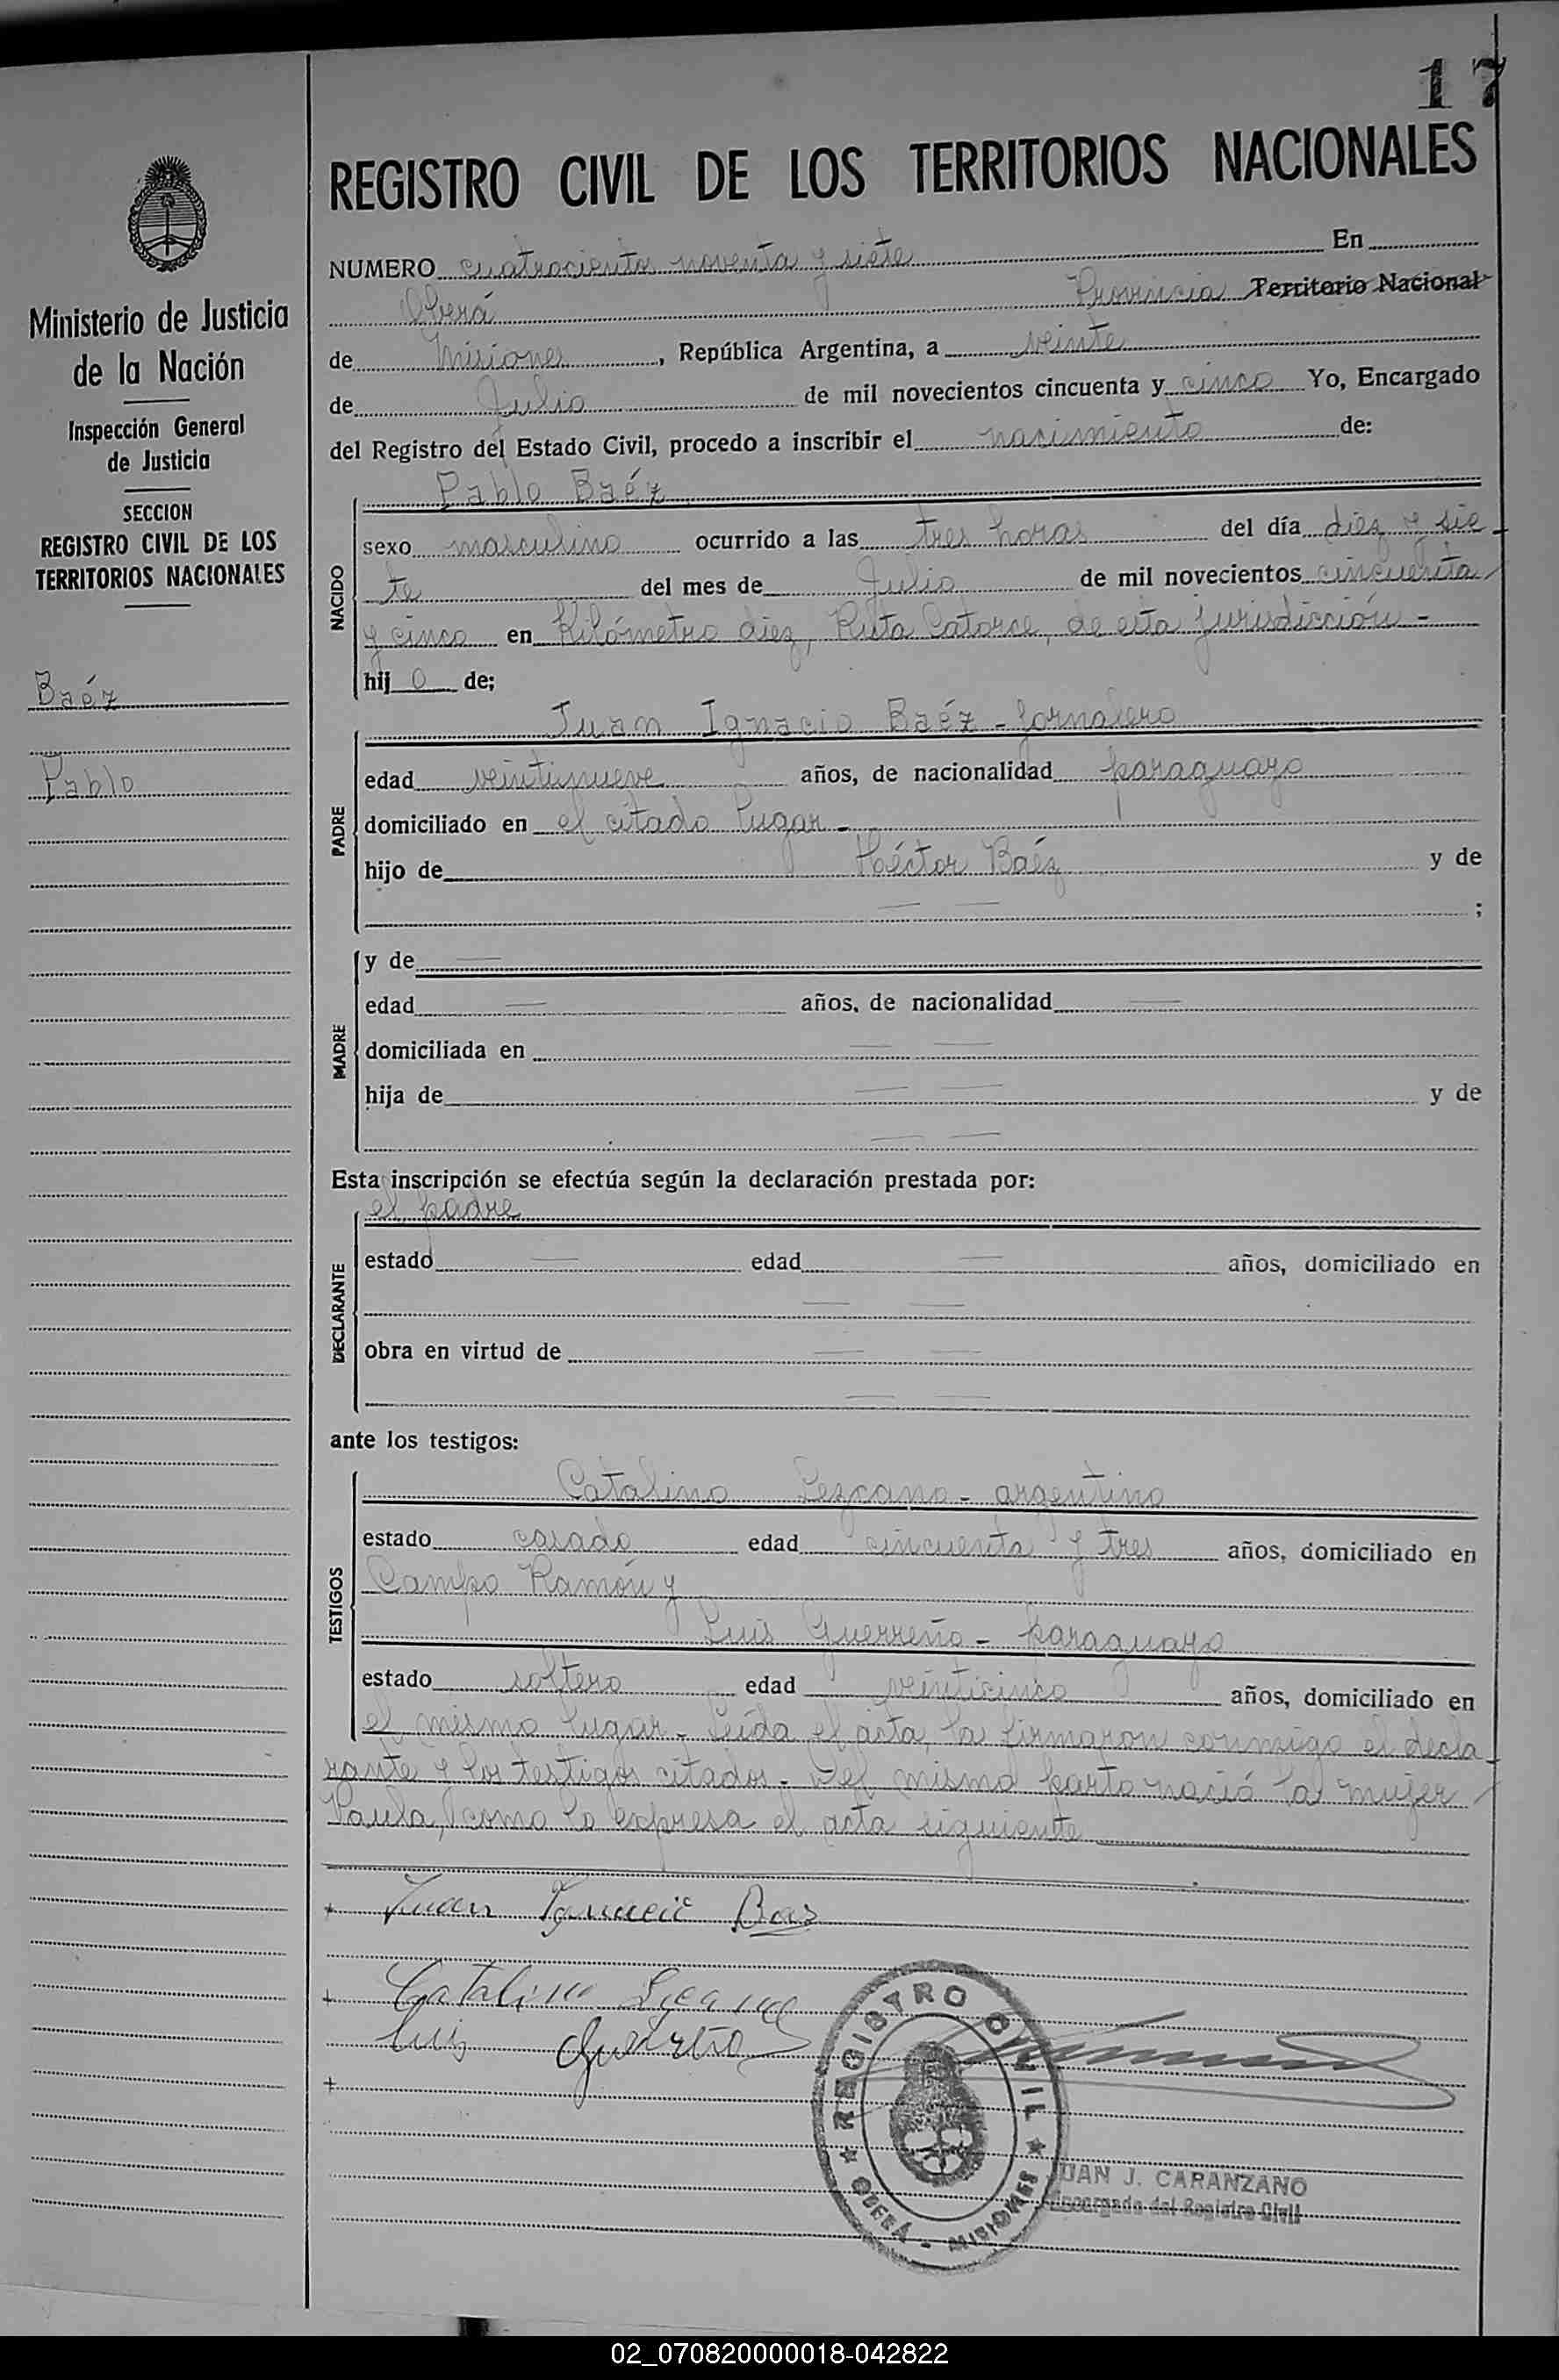 17
REGISTRO CIVIL DE LOS TERRITORIOS NACIONALES
NUMERO cuatrocientos noventa y siete En
Oberá Provincia Territorio Nacional
de Misiones, República Argentina, a veinte
de Julio de mil novecientos cincuenta y cinco Yo, Encargado
del Registro del Estado Civil, procedo a inscribir el nacimiento de:
Ministerio de Justicia
de la Nación
Inspección General
de Justicia
SECCION
REGISTRO CIVIL DE LOS
TERRITORIOS NACIONALES
Baéz
Pablo
NACIDO
Pablo Baéz
sexo masculino ocurrido a las tres horas del día diez y sie-
te del mes de Julio de mil novecientos cincuenta
y cinco en Kilómetro diez, Ruta Catorce, de esta jurisdicción -
hijo de;
PADRE
Juan Ignacio Baéz - jornalero
edad veintinueve años, de nacionalidad paraguayo
domiciliado en el citado lugar -
hijo de Héctor Baéz y de
— — ;
MADRE
y de —
edad — años, de nacionalidad —
domiciliada en — —
hija de — — y de
— —
Esta inscripción se efectúa según la declaración prestada por:
DECLARANTE
el padre
estado — edad — años, domiciliado en
— —
obra en virtud de — —
— —
ante los testigos:
TESTIGOS
Catalino Lezcano - argentino
estado casado edad cincuenta y tres años, domiciliado en
Campo Ramón y
Luis Guerreño - paraguayo
estado soltero edad veinticinco años, domiciliado en
el mismo lugar - Leída el acta, la firmaron conmigo el decla-
rante y los testigos citados - Del mismo parto nació la mujer
Paula, como lo expresa el acta siguiente
Juan Ignacio Baz
Catalino
Luis
REGISTRO CIVIL
OBERÁ - MISIONES
JUAN J. CARANZANO
Encargado del Registro Civil
02_070820000018-042822